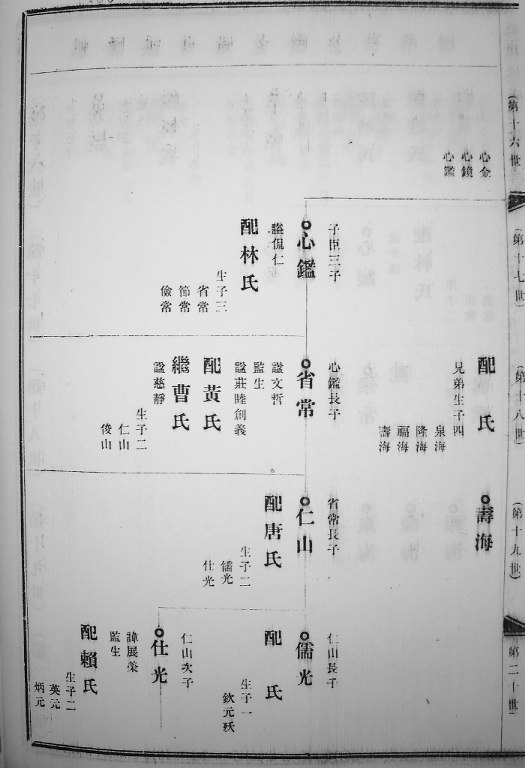 第十六世
第十七世
第十八世
第十九世
第二十世
心金
心鏡
心鑑
配氏
兄弟生子四
泉海
隆海
福海
壽海
壽海
子臣三子
心鑑
諡侃仁
配林氏
生子三
省常
節常
儉常
心鑑長子
省常
諡文哲
監生
諡莊睦創義
配黃氏
繼曹氏
諡慈靜
生子二
仁山
俊山
省常長子
仁山
配唐氏
生子二
儒光
仕光
仁山長子
儒光
配氏
生子一
欽元
仁山次子
仕光
諱展榮
監生
配賴氏
生子二
英元
炳元